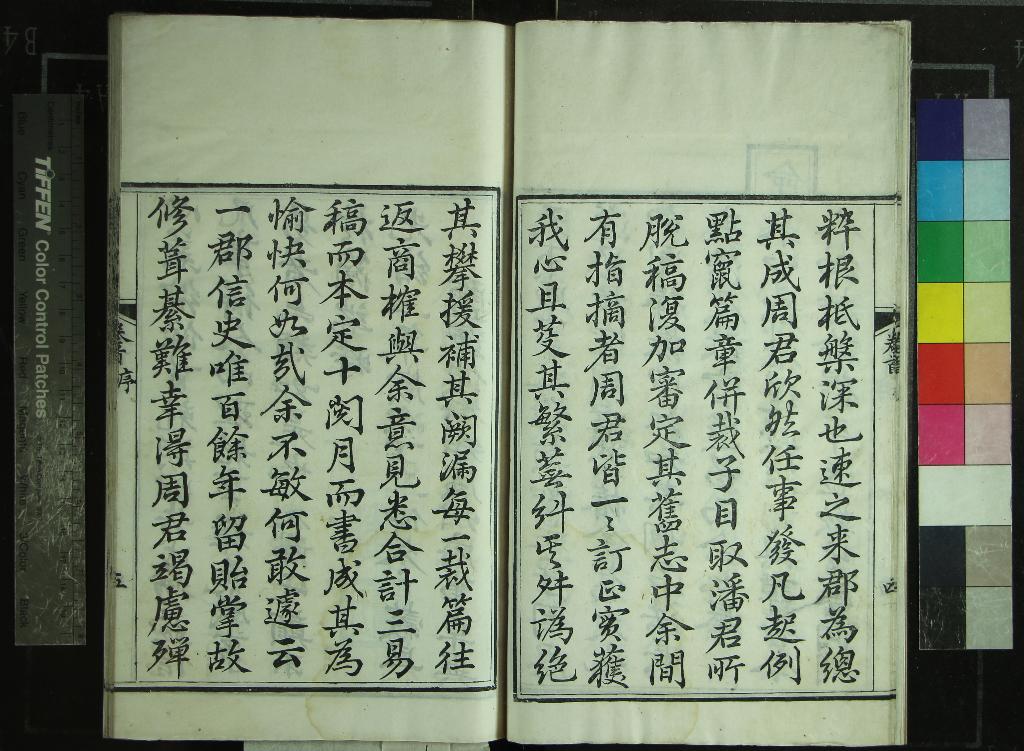 粹根柢槃深也速之来郡為總
其成周君欣然任事發凡起例
點竄篇章併裁子目取潘君所
脫稿復加審定其舊志中余間
有指摘者周君皆一〻訂正實獲
我心且芟其繁蕪糾其舛譌絶
其攀援補其闕漏每一裁篇往
返商榷與余意見悉合計三易
稿而本定十閱月而書成其為
愉快何如哉余不敏何敢遽云
一郡信史唯百餘年留貽掌故
修葺綦難幸得周君竭慮殫
卷首
四
卷首序
五
TIFFEN Color Control Patches